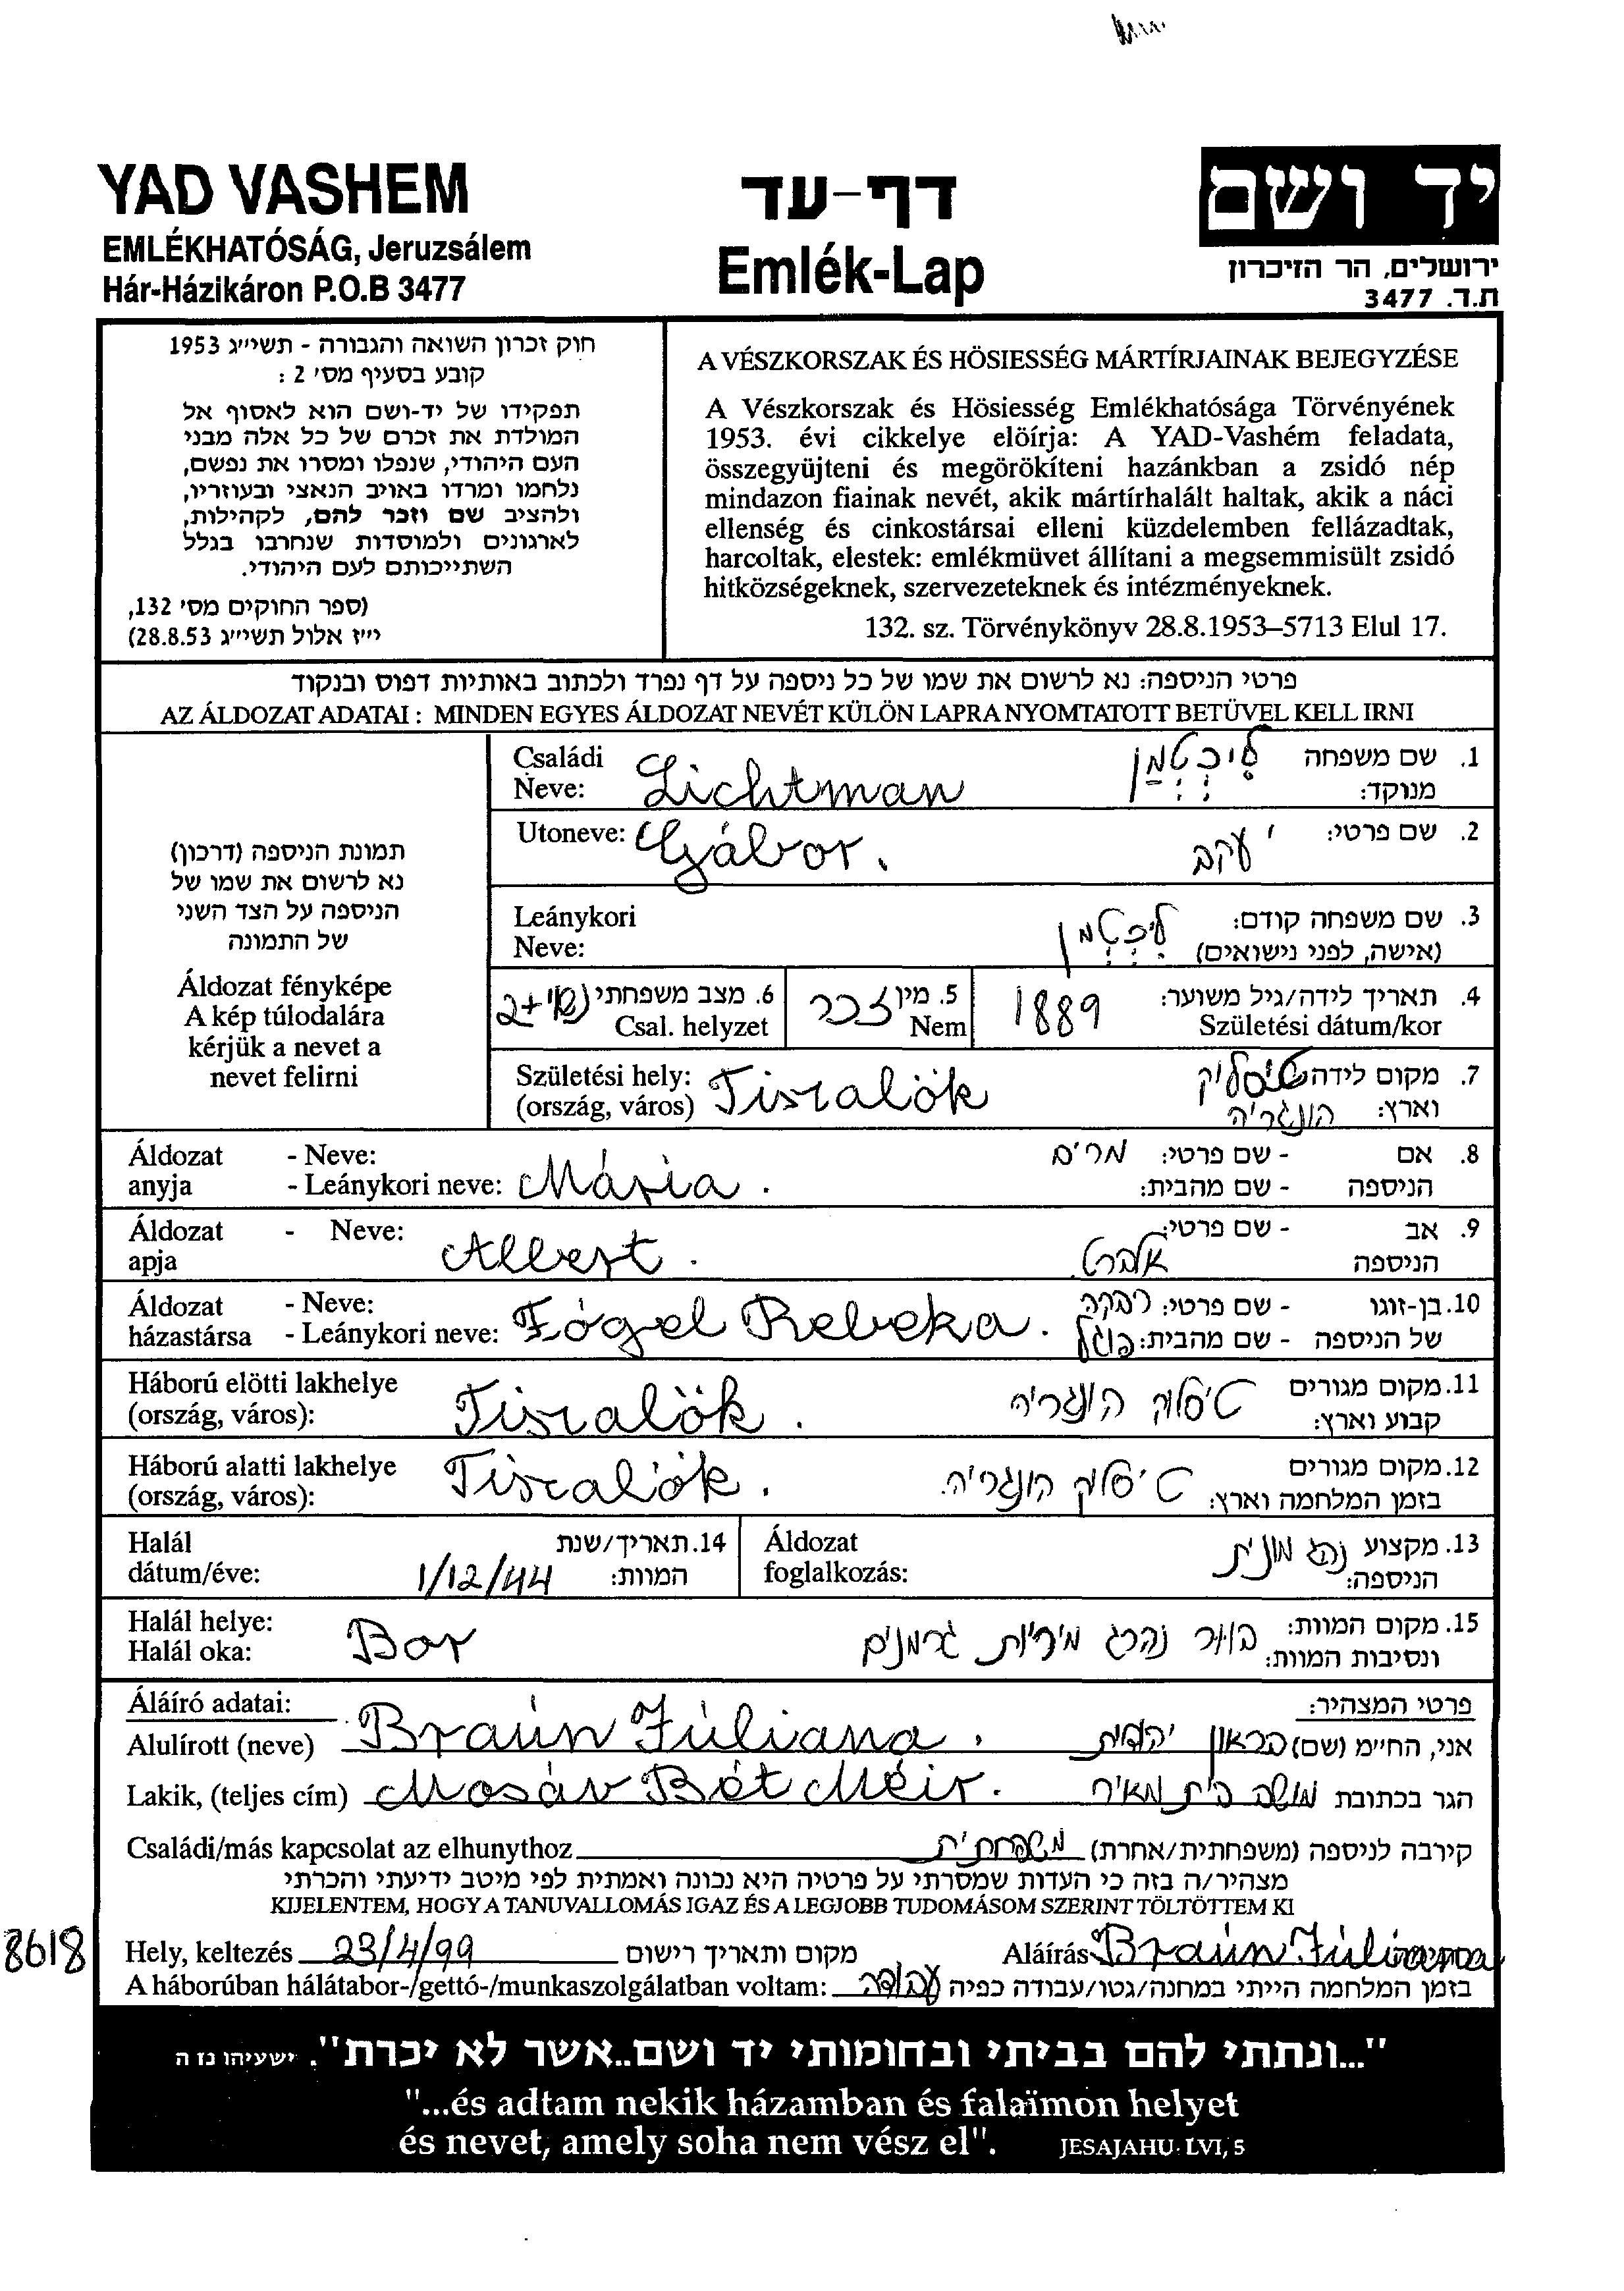 YAD VASHEM
EMLÉKHATÓSÁG, Jeruzsálem
Hár-Házikáron P.O.B 3477
דף-עד
Emlék-Lap
יד ושם
ירושלים, הר הזיכרון
ת.ד. 3477
חוק זכרון השואה והגבורה - תשי״ג 1953
קובע בסעיף מס׳ 2 :
תפקידו של יד-ושם הוא לאסוף אל
המולדת את זכרם של כל אלה מבני
העם היהודי, שנפלו ומסרו את נפשם,
נלחמו ומרדו באויב הנאצי ובעוזריו,
ולהציב שם וזכר להם, לקהילות,
לארגונים ולמוסדות שנחרבו בגלל
השתייכותם לעם היהודי.
(ספר החוקים מס׳ 132,
י״ז אלול תשי״ג 28.8.53)
A VÉSZKORSZAK ÉS HÖSIESSÉG MÁRTÍRJAINAK BEJEGYZÉSE
A Vészkorszak és Hösiesség Emlékhatósága Törvényének
1953. évi cikkelye elöírja: A YAD-Vashém feladata,
összegyüjteni és megörökíteni hazánkban a zsidó nép
mindazon fiainak nevét, akik mártírhalált haltak, akik a náci
ellenség és cinkostársai elleni küzdelemben fellázadtak,
harcoltak, elestek: emlékmüvet állítani a megsemmisült zsidó
hitközségeknek, szervezeteknek és intézményeknek.
132. sz. Törvénykönyv 28.8.1953–5713 Elul 17.
פרטי הניספה: נא לרשום את שמו של כל ניספה על דף נפרד ולכתוב באותיות דפוס ובנקוד
AZ ÁLDOZAT ADATAI : MINDEN EGYES ÁLDOZAT NEVÉT KÜLÖN LAPRA NYOMTATOTT BETÜVEL KELL IRNI
תמונת הניספה (דרכון)
נא לרשום את שמו של
הניספה על הצד השני
של התמונה
Áldozat fényképe
A kép túlodalára
kérjük a nevet a
nevet felirni
Családi
Neve: Lichtman
1. שם משפחה
מנוקד: ליכטמן
Utoneve: Gábor.
2. שם פרטי: יעקב
Leánykori
Neve:
3. שם משפחה קודם: ליכטמן
(אישה, לפני נישואים)
4. תאריך לידה/גיל משוער: 1889
Születési dátum/kor
5. מין זכר
Nem
6. מצב משפחתי נשוי +2
Csal. helyzet
Születési hely: Tiszalök
(ország, város)
7. מקום לידה טיסלוק
וארץ: הונגריה
Áldozat - Neve:
anyja - Leánykori neve: Mária.
8. אם - שם פרטי: מרים
הניספה - שם מהבית:
Áldozat - Neve: Albert.
apja
9. אב - שם פרטי: אלברט.
הניספה
Áldozat - Neve:
házastársa - Leánykori neve: Fógel Rebeka.
10. בן-זוגו - שם פרטי: רבקה
של הניספה - שם מהבית: פוגל
Háború elötti lakhelye
(ország, város): Tiszalök.
11. מקום מגורים
קבוע וארץ: טיסלוק הונגריה
Háború alatti lakhelye
(ország, város): Tiszalök.
12. מקום מגורים
בזמן המלחמה וארץ: טיסלוק הונגריה.
Halál
dátum/éve: 1/12/44
14. תאריך/שנת
המוות:
Áldozat
foglalkozás:
13. מקצוע נהג מונית
הניספה:
Halál helye: Bor
Halál oka:
15. מקום המוות:
ונסיבות המוות: בור נהרג מיריות גרמנים
Aláíró adatai:
פרטי המצהיר:
Alulírott (neve) Braún Júliana.
אני, החי״מ (שם) בראון יהודית
Lakik, (teljes cím) Mosáv Bét Méir.
הגר בכתובת מושב בית מאיר
Családi/más kapcsolat az elhunythoz
קירבה לניספה (משפחתית/אחרת) משפחתית
מצהיר/ה בזה כי העדות שמסרתי על פרטיה היא נכונה ואמתית לפי מיטב ידיעתי והכרתי
KIJELENTEM, HOGY A TANUVALLOMÁS IGAZ ÉS A LEGJOBB TUDOMÁSOM SZERINT TÖLTÖTTEM KI
8618
Hely, keltezés 23/4/99 מקום ותאריך רישום
Aláírás Braún Júliana
A háborúban hálátabor-/gettó-/munkaszolgálatban voltam:
בזמן המלחמה הייתי במחנה/גטו/עבודה כפיה עבודה
"...ונתתי להם בביתי ובחומותי יד ושם..אשר לא יכרת". ישעיהו נו ה
"...és adtam nekik házamban és falaïmon helyet
és nevet, amely soha nem vész el". JESAJAHU: LVI, 5